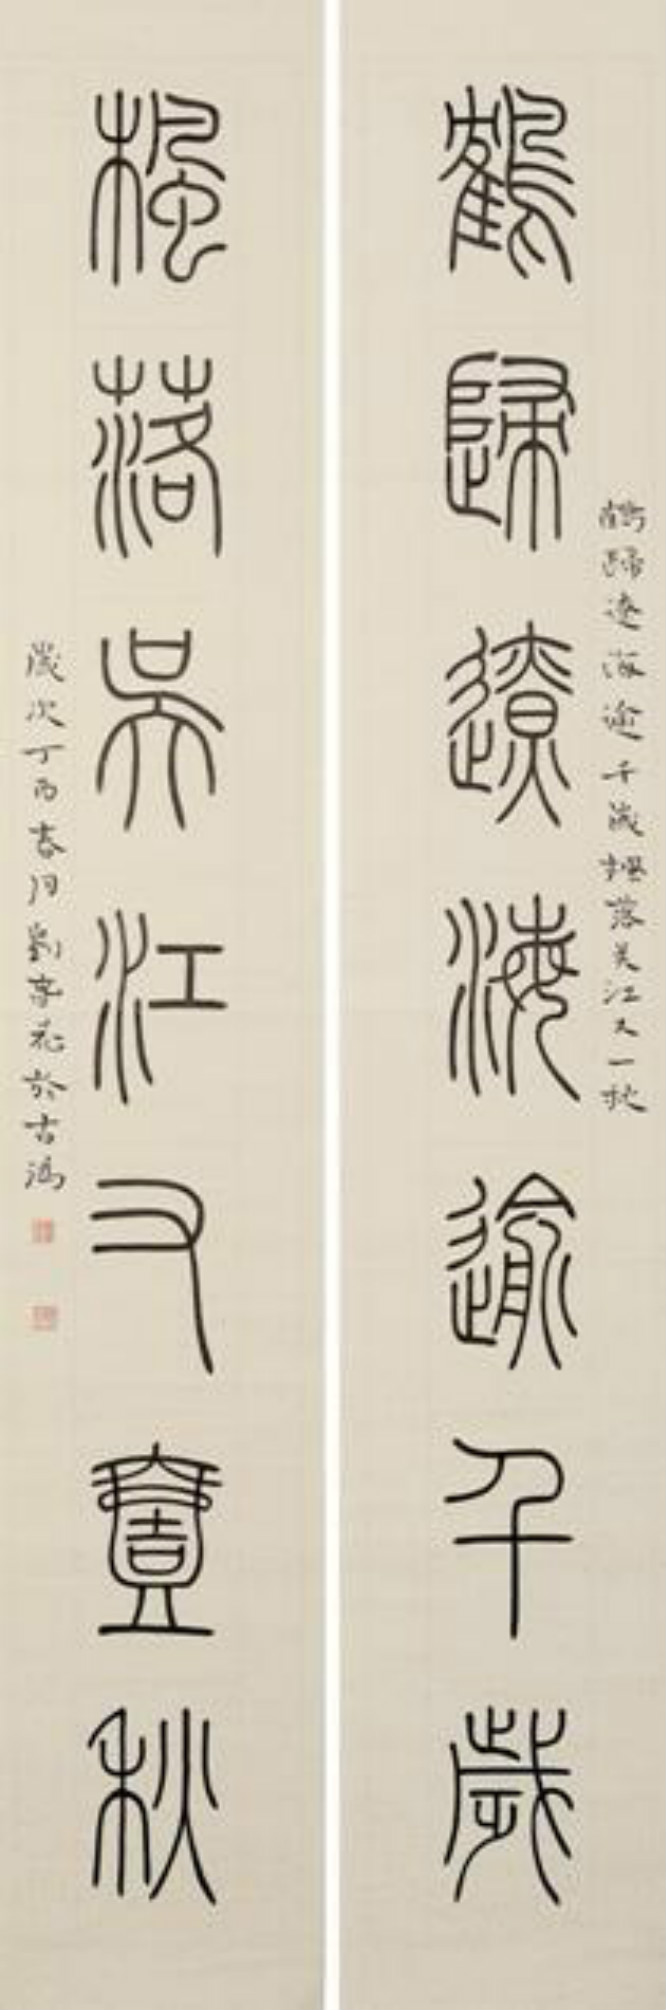 鶴歸遼海逾千歲楓落吳江又一秋
鶴歸遼海逾千歲
楓落吳江又壹秋
歲次丁酉春月劉於古